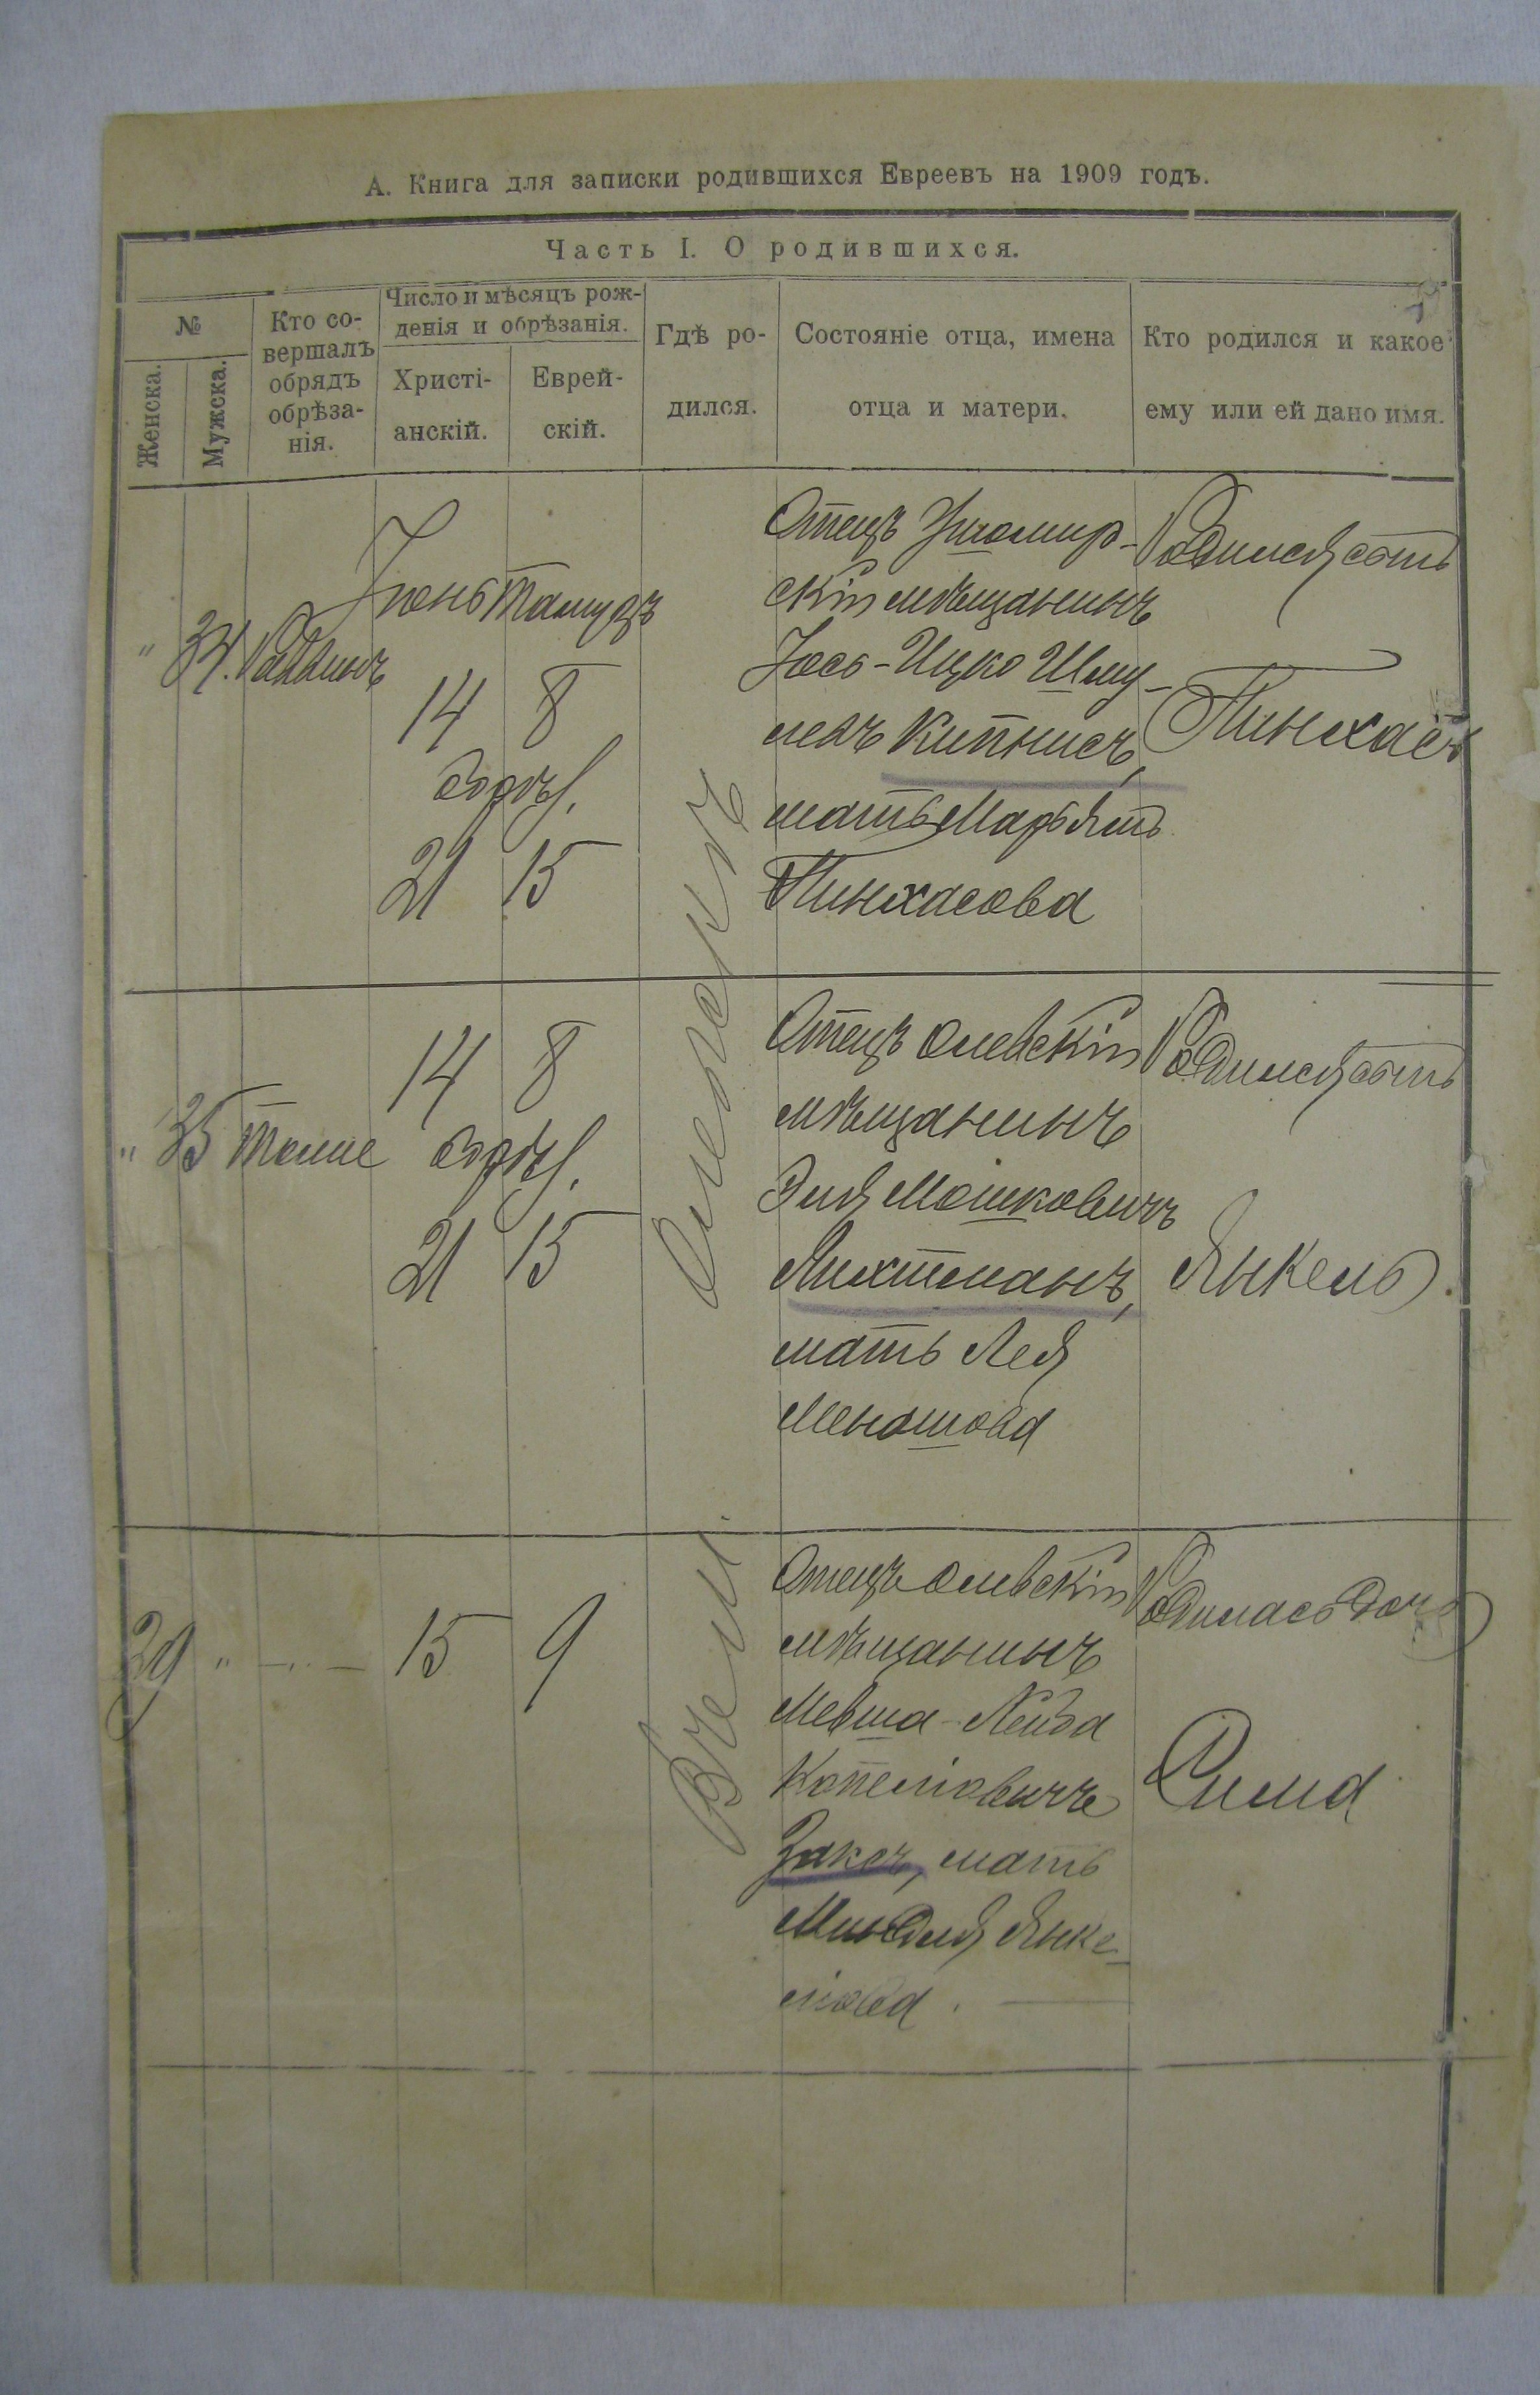 А. Книга для записки родившихся Евреевъ на 1909 годъ.
Часть I. О родившихся.
№
Женска.
Мужска.
Кто со-
вершалъ
обрядъ
обрѣза-
нія.
Число и мѣсяцъ рож-
денія и обрѣзанія.
Христі-
анскій.
Еврей-
скій.
Гдѣ ро-
дился.
Состояніе отца, имена
отца и матери.
Кто родился и какое
ему или ей дано имя.
" 34. Раввинъ
Іюнь Тамузъ
14 8
обрѣз.
21 15
Отецъ Житомир-
скій мѣщанинъ
Іось-Ицко Шму-
левъ Кипнисъ,
мать Марьясъ
Пинхасова
Родился сынъ
Пинхасъ
" 35 Тоже
14 8
обрѣз.
21 15
Отецъ Олевскій
мѣщанинъ
Эля Мошковичъ
Лихтманъ,
мать Лея
Меношова
Родился сынъ
Янкель.
29 " — " —
15 9
Отецъ Олевскій
мѣщанинъ
Мевша-Лейба
Копеліовичъ
Заксъ, мать
Миндля Янке-
ліова. —
Родилась дочь
Сима
Олевскъ